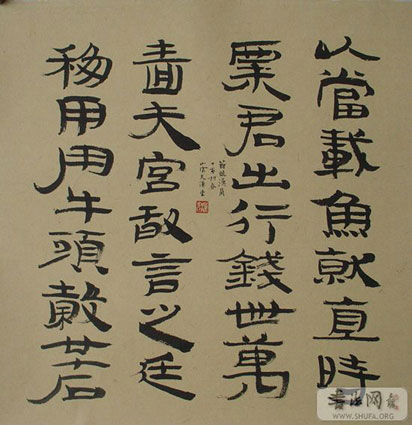 以當載魚就直時
粟君出行錢卌萬
嗇夫宮敢言之廷
移用用牛頭穀廿石
節臨漢簡
书法网
WWW.SHUFA.ORG